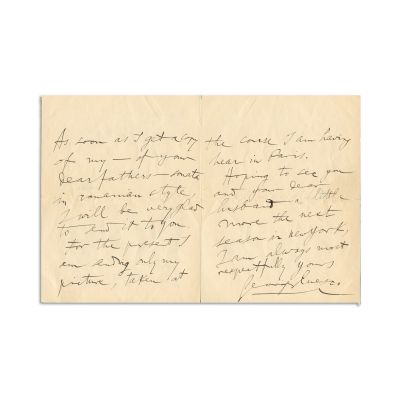 As soon as I get a copy
of my — of your
dear fathers — sonata
in romanian style
I will be very glad
to send it to you
For the present I
am sending only my
picture, taken at
the course I am having
hear in Paris.
Hoping to see you
and your dear
husband a little
more the next
season in new york,
I am always most
respectfully yours
Georges Enesco